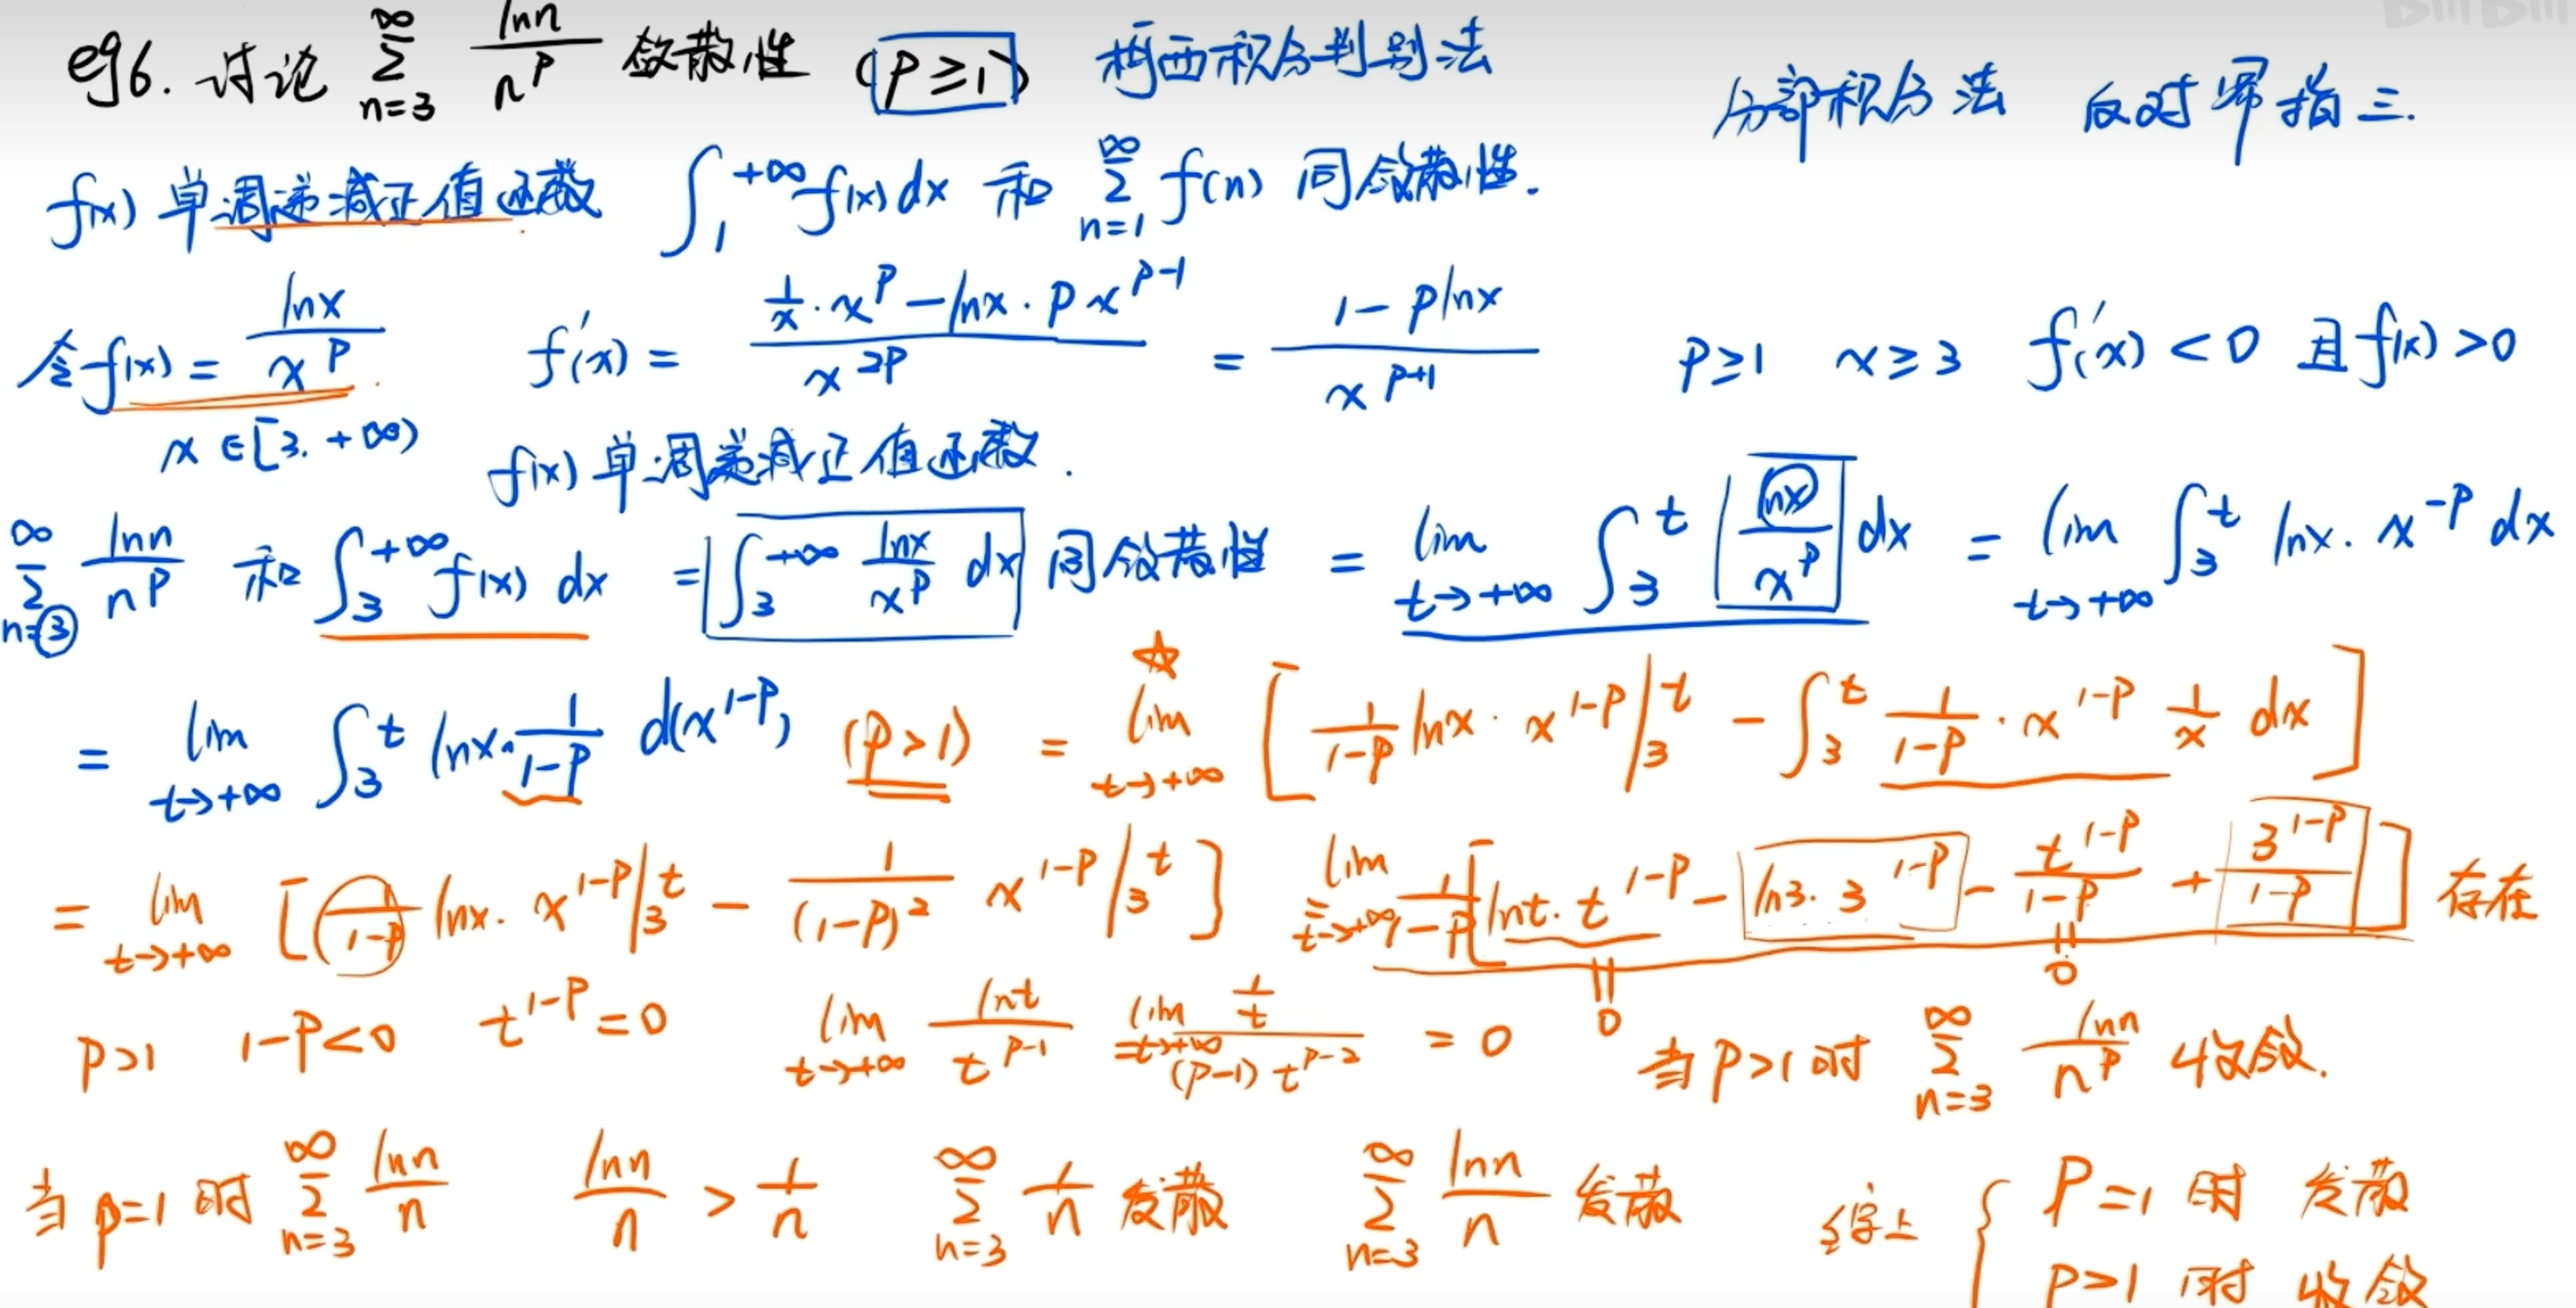 eg6. 讨论 ∑_{n=3}^{∞} \frac{lnn}{n^p} 敛散性 (p≥1) 柯西积分判别法
分部积分法 反对幂指三.
f(x) 单调递减正值函数 ∫_1^{+∞} f(x) dx 和 ∑_{n=1}^{∞} f(n) 同敛散性.
令 f(x) = \frac{lnx}{x^p} f'(x) = \frac{\frac{1}{x}·x^p - lnx·p x^{p-1}}{x^{2p}} = \frac{1-plnx}{x^{p+1}} p≥1 x≥3 f'(x)<0 且 f(x)>0
x∈[3.+∞) f(x) 单调递减正值函数.
∑_{n=3}^{∞} \frac{lnn}{n^p} 和 ∫_3^{+∞} f(x) dx = ∫_3^{+∞} \frac{lnx}{x^p} dx 同敛散性 = lim_{t→+∞} ∫_3^t \frac{lnx}{x^p} dx = lim_{t→+∞} ∫_3^t lnx·x^{-p} dx
= lim_{t→+∞} ∫_3^t lnx·\frac{1}{1-p} d(x^{1-p}) (p>1) = lim_{t→+∞} [\frac{1}{1-p} lnx·x^{1-p}|_3^t - ∫_3^t \frac{1}{1-p}·x^{1-p} \frac{1}{x} dx]
= lim_{t→+∞} [\frac{1}{1-p} lnx·x^{1-p}|_3^t - \frac{1}{(1-p)^2} x^{1-p}|_3^t] = lim_{t→+∞} \frac{1}{1-p}[lnt·t^{1-p} - ln3·3^{1-p} - \frac{t^{1-p}}{1-p} + \frac{3^{1-p}}{1-p}] 存在
0 0
p>1 1-p<0 t^{1-p}=0 lim_{t→+∞} \frac{lnt}{t^{p-1}} = lim_{t→+∞} \frac{\frac{1}{t}}{(p-1)t^{p-2}} = 0 当 p>1 时 ∑_{n=3}^{∞} \frac{lnn}{n^p} 收敛.
当 p=1 时 ∑_{n=3}^{∞} \frac{lnn}{n} \frac{lnn}{n} > \frac{1}{n} ∑_{n=3}^{∞} \frac{1}{n} 发散 ∑_{n=3}^{∞} \frac{lnn}{n} 发散 综上 { P=1 时 发散
p>1 时 收敛